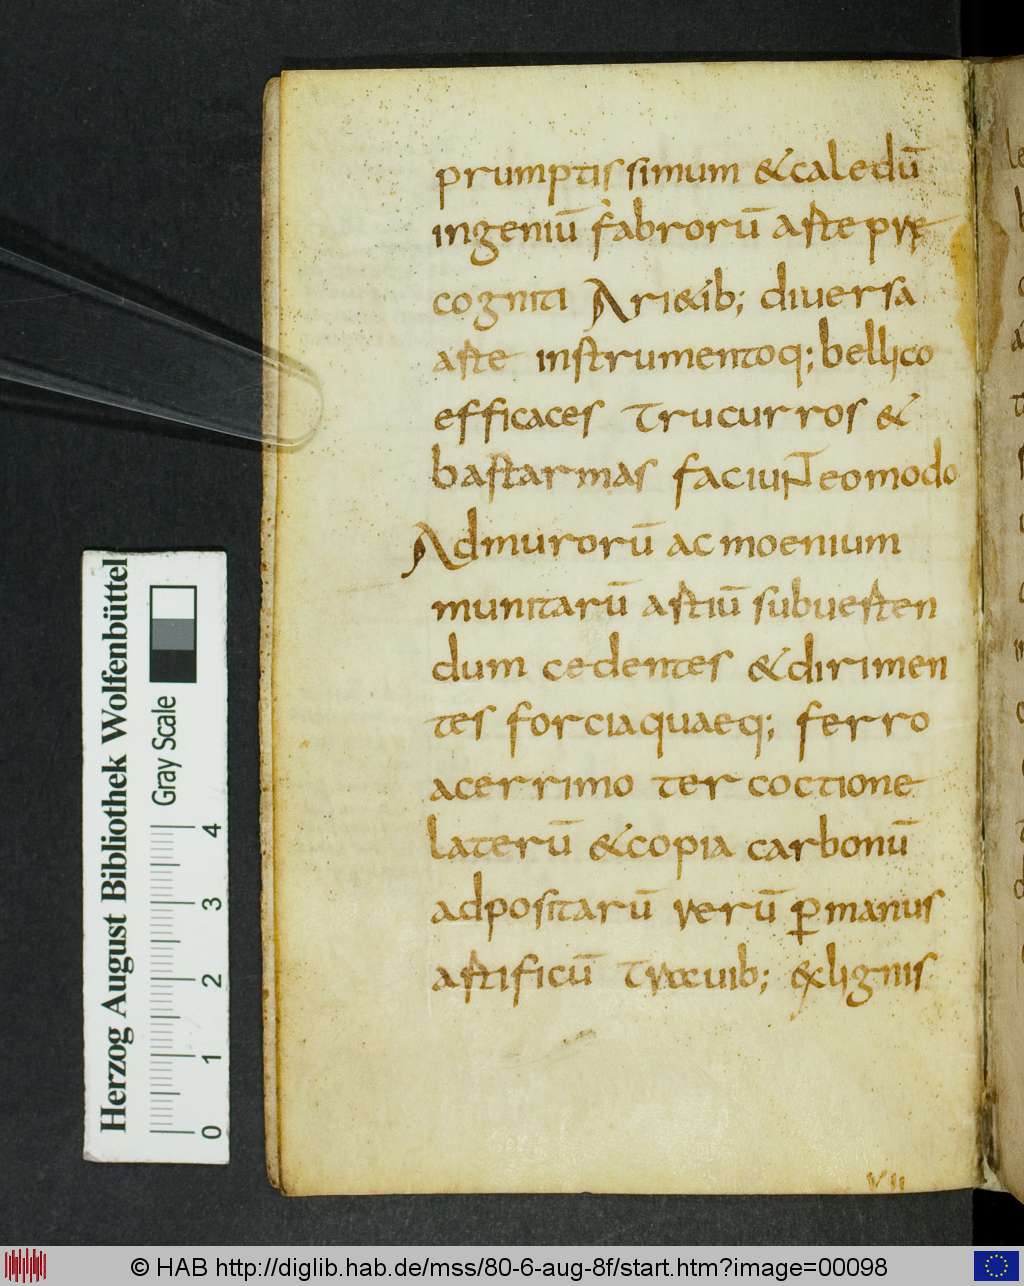 prumptissimum & caledū
ingeniū fabrorū arte prae
cogniti Ari&ib; diuersa
arte instrumentoq; bellico
efficaces Trucurros &
bastarmas faciuNT eo modo
Ad murorū ac moenium
munitarū artiū subuerten
dum cedentes & dirimen
tes forcia quaeq; ferro
acerrimo ter coctione
laterū & copia carbonū
adpositarū rerū ꝑ manus
artificū & lignis
VII
Herzog August Bibliothek Wolfenbüttel
Gray Scale
0 1 2 3 4
© HAB http://diglib.hab.de/mss/80-6-aug-8f/start.htm?image=00098